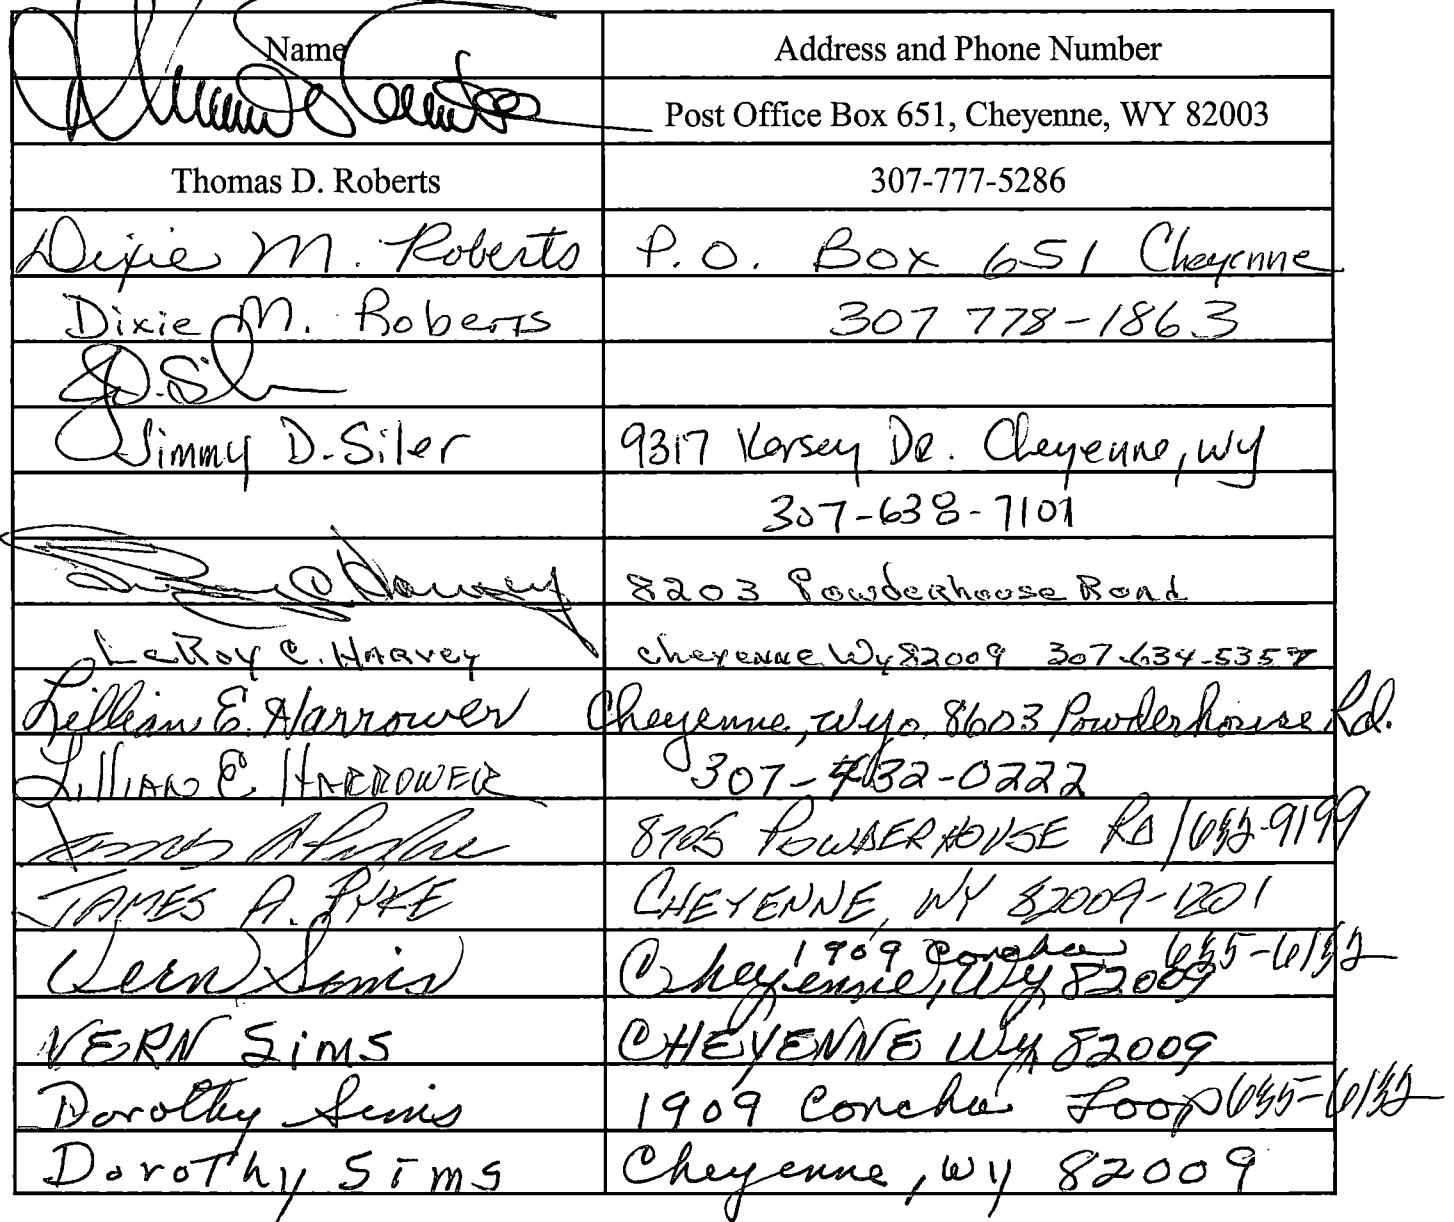 Name Address and Phone Number
Post Office Box 651, Cheyenne, WY 82003
Thomas D. Roberts 307-777-5286
Dixie M. Roberts P.O. Box 651 Cheyenne
Dixie M. Roberts 307 778-1863
JD. Sil
Jimmy D. Siler 9317 Kersey Dr. Cheyenne, WY
307-638-7101
C Harvey 8203 Powderhouse Road
LeRoy C. Harvey Cheyenne Wy 82009 307-634-5357
Lillian E. Harrower Cheyenne, Wyo. 8603 Powderhouse Rd.
Lillian E. Harrower 307-432-0222
James A Pyke 8705 POWDERHOUSE RD / 632-9199
JAMES A. PYKE CHEYENNE, WY 82009-1201
Vern Sims 1909 Concha 635-6132
Cheyenne, Wy 82009
VERN Sims CHEYENNE Wy 82009
Dorothy Sims 1909 Concha Loop 635-6132
Dorothy Sims Cheyenne, WY 82009